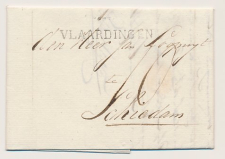 VLAARDINGEN
Den Heer Jan
te
Schiedam